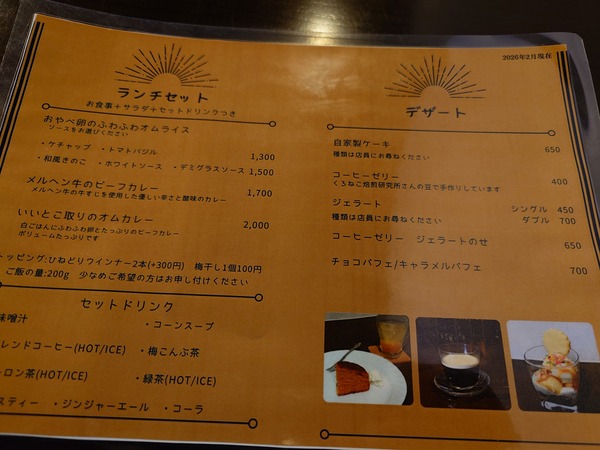 ランチセット
お食事+サラダ+セットドリンクつき
おやべ卵のふわふわオムライス
ソースをお選びください
・ケチャップ ・トマトバジル 1,300
・和風きのこ ・ホワイトソース ・デミグラスソース 1,500
メルヘン牛のビーフカレー 1,700
メルヘン牛の牛すじを使用した優しい辛さと酸味のカレー
いいとこ取りのオムカレー 2,000
白ごはんにふわふわ卵とたっぷりのビーフカレー
ボリュームたっぷりです
トッピング:ひねどりウインナー2本(+300円) 梅干し1個100円
ご飯の量:200g 少なめご希望の方はお申し付けください
セットドリンク
味噌汁 ・コーンスープ
レンドコーヒー(HOT/ICE) ・梅こんぶ茶
ーロン茶(HOT/ICE) ・緑茶(HOT/ICE)
スティー ・ジンジャーエール ・コーラ
2026年2月現在
デザート
自家製ケーキ 650
種類は店員にお尋ねください
コーヒーゼリー 400
くろねこ焙煎研究所さんの豆で手作りしています
ジェラート シングル 450
種類は店員にお尋ねください ダブル 700
コーヒーゼリー ジェラートのせ 650
チョコパフェ/キャラメルパフェ 700